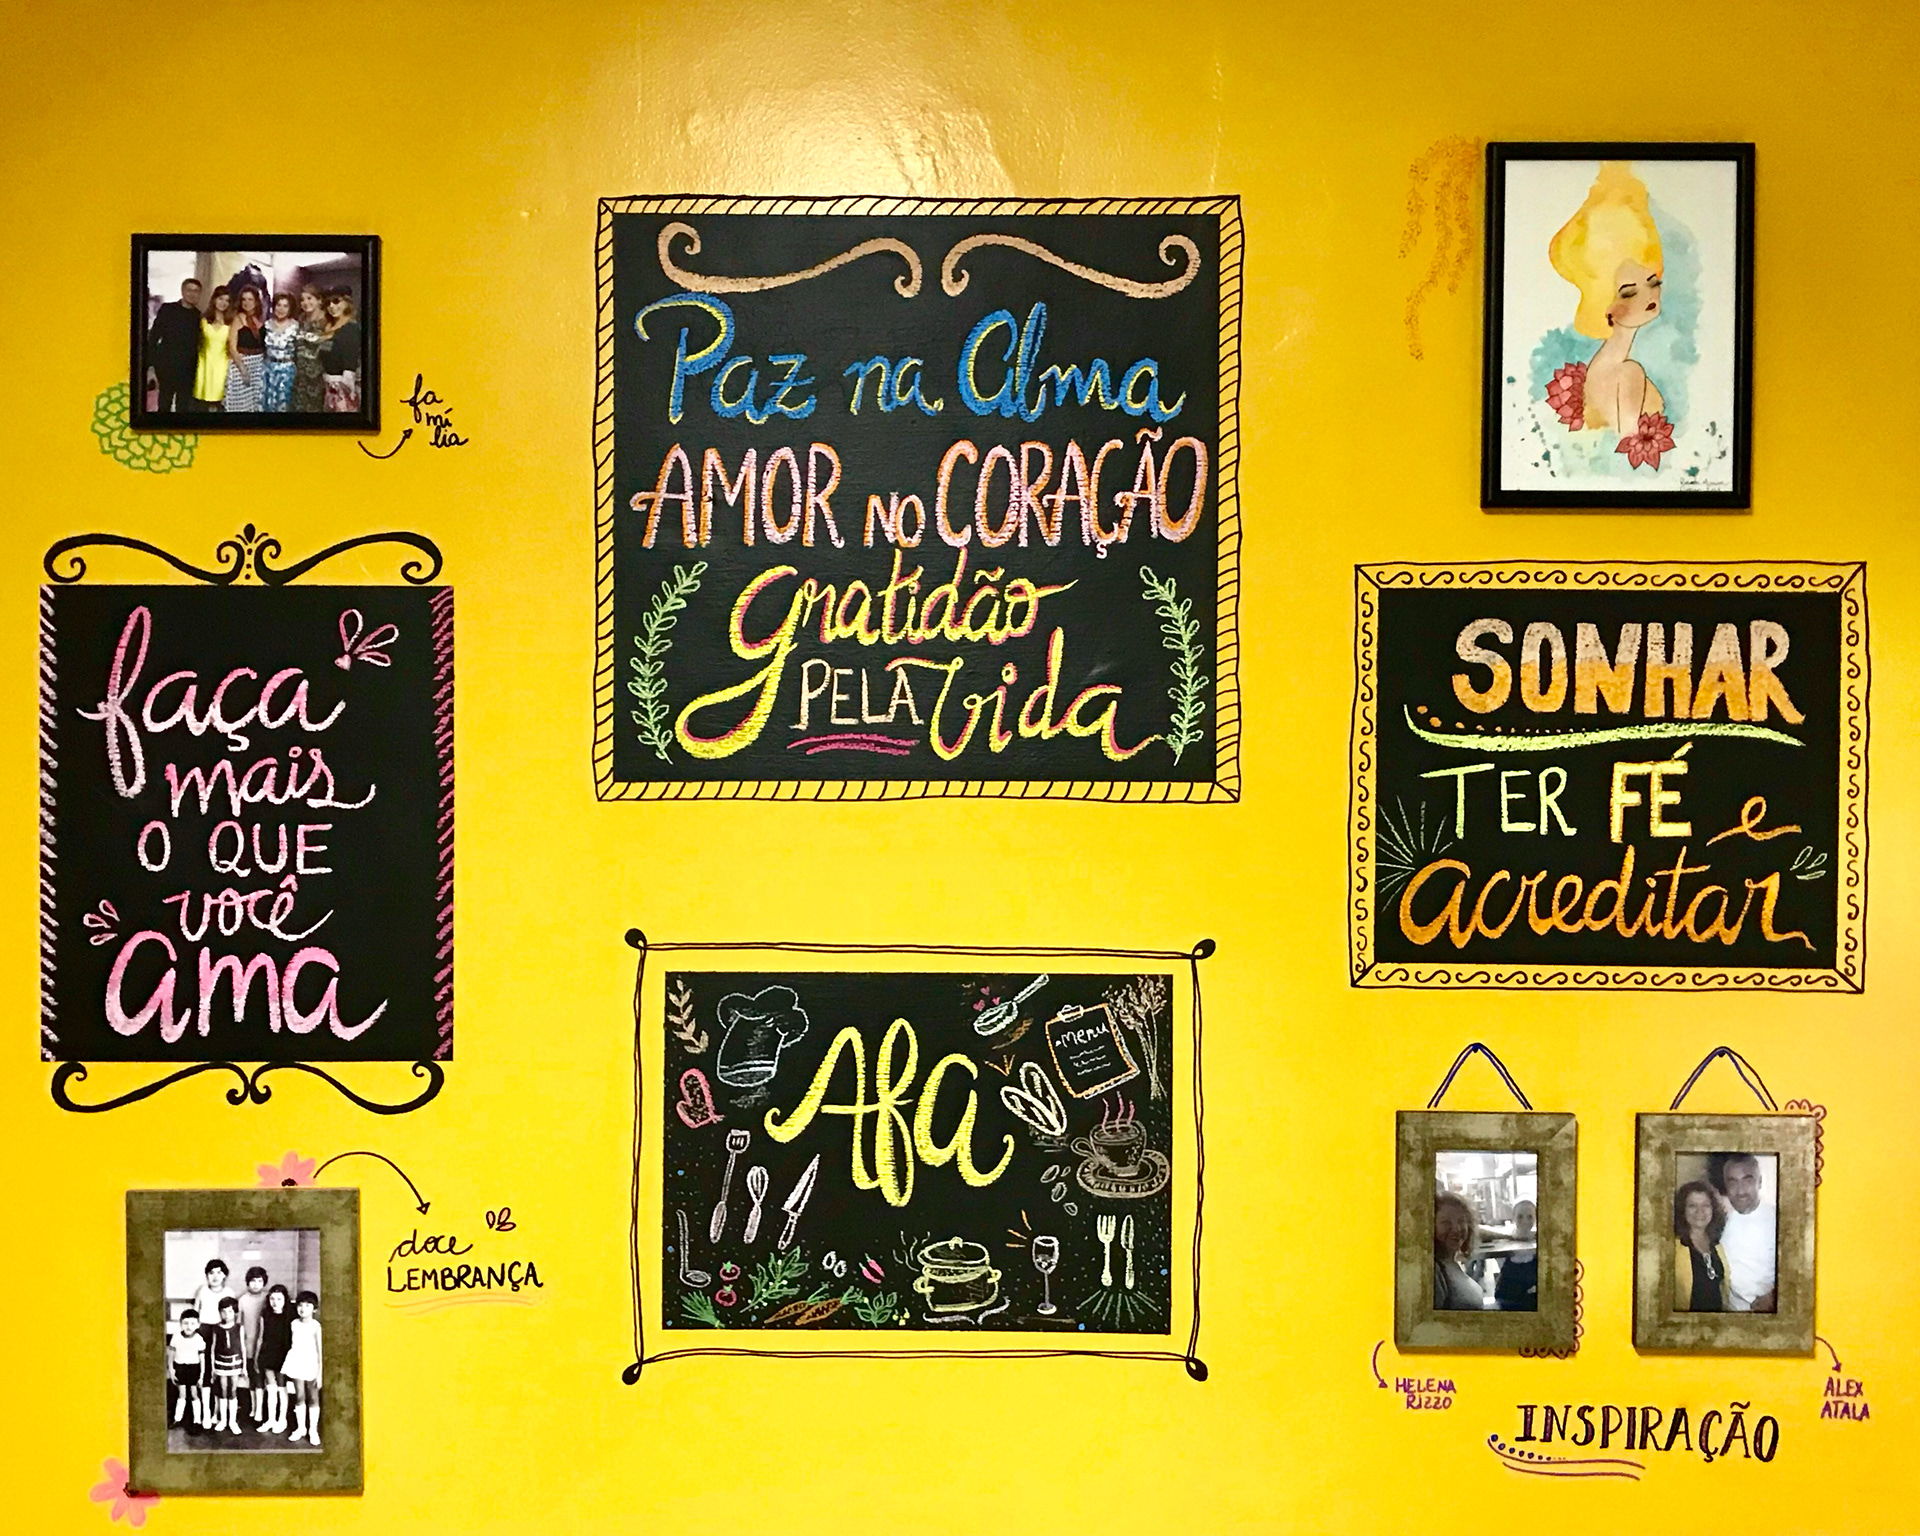 fa
mí
lia
faça
mais
O QUE
você
ama
doce
LEMBRANÇA
Paz na Alma
AMOR NO CORAÇÃO
gratidão
PELA vida
Afa
menu
SONHAR
TER FÉ e
acreditar
HELENA
RIZZO
ALEX
ATALA
INSPIRAÇÃO